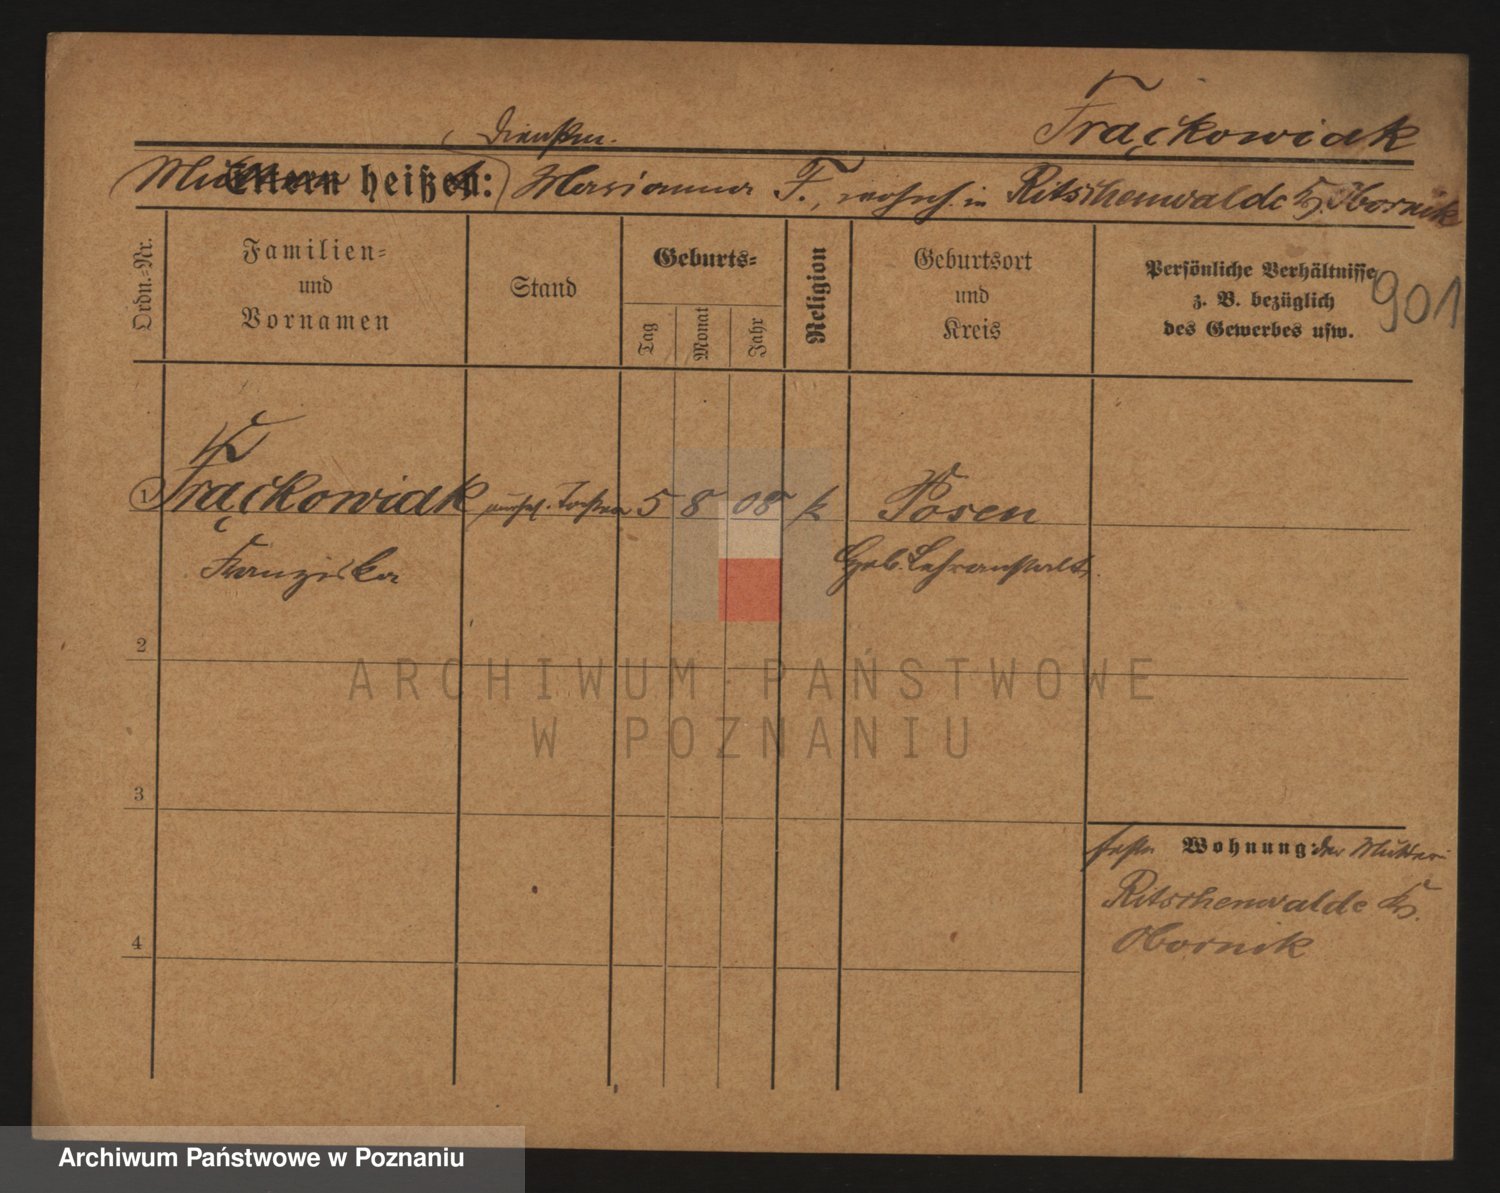 Frąckowiak
Dienstm.
Mutter Eltern heißen: Marianna F., wohnh. in Ritschenwalde Kr. Obornik
Ordn.-Nr.
Familien-
und
Vornamen
Stand
Geburts-
Tag
Monat
Jahr
Religion
Geburtsort
und
Kreis
Persönliche Verhältnisse
z. B. bezüglich
des Gewerbes usw.
901
1 Frąckowiak unehel. Tochter 5 8 08 k Posen
Franziska Heb. Lehranstalt.
2
3
4
Wohnung: der Mutter:
Ritschenwalde Kr.
Obornik
ARCHIWUM PAŃSTWOWE
W POZNANIU
Archiwum Państwowe w Poznaniu